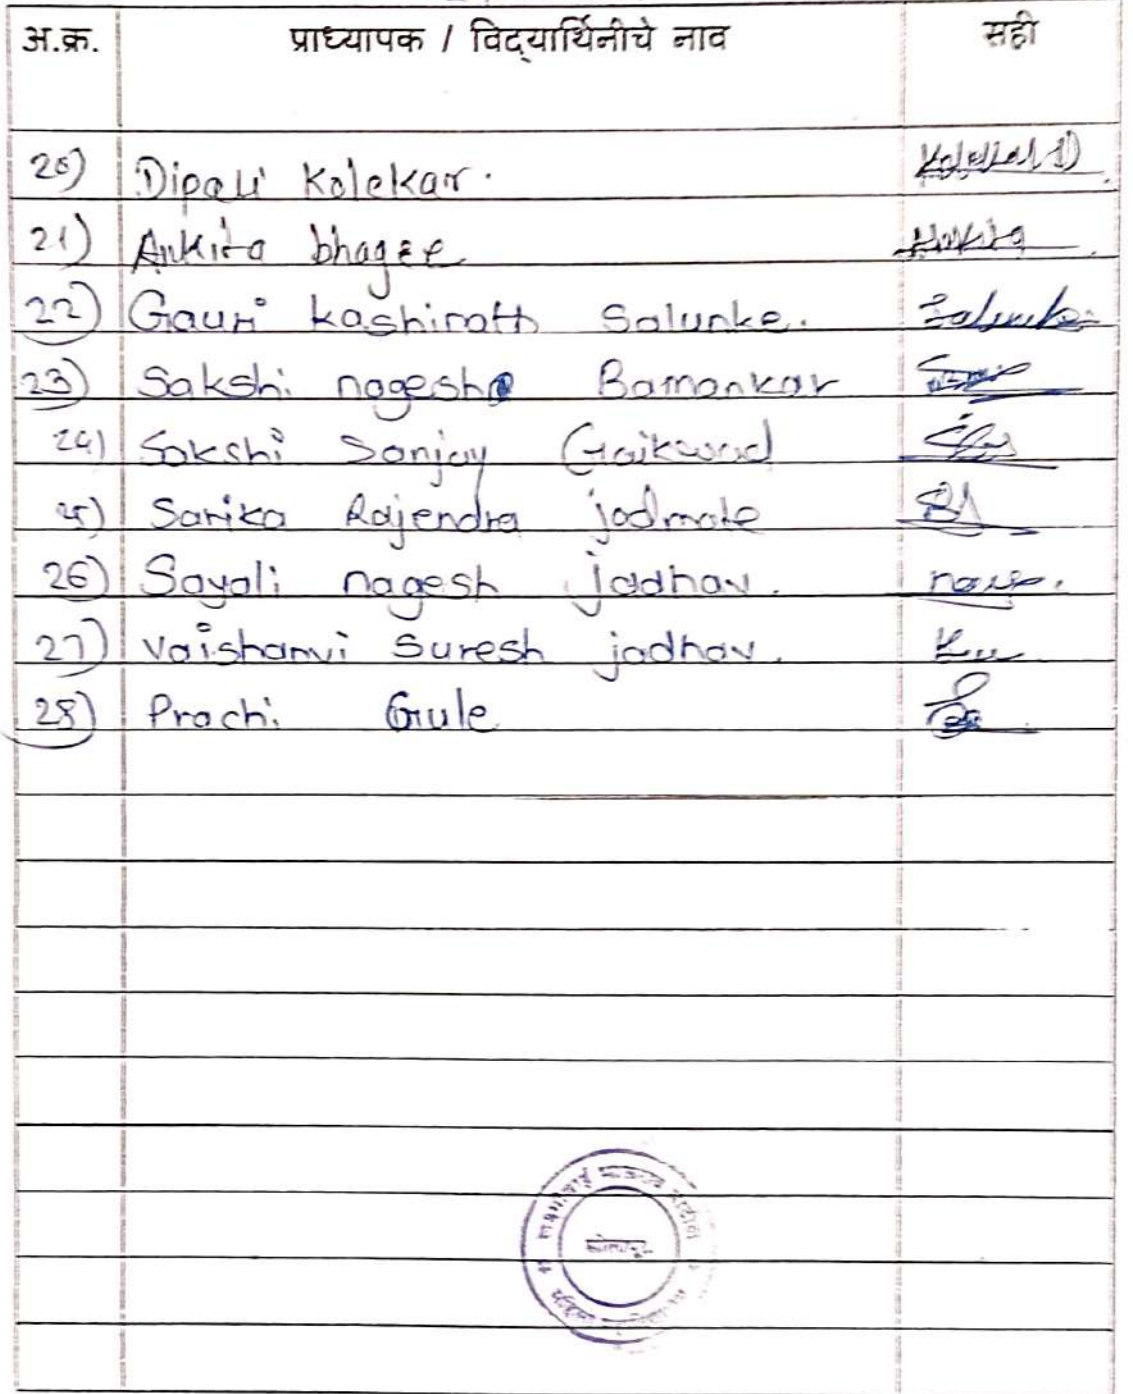 अ.क्र. प्राध्यापक / विद्यार्थिनीचे नाव सही
20) Dipali Kolekar.
21) Ankita bhagre Ankita
22) Gauri kashinath Salunke. Salunke
23) Sakshi nagesh Bamankar
24) Sakshi Sanjay Gaikwad
25) Sarika Rajendra jadmale
26) Sayali nagesh jadhav.
27) vaishanvi suresh jadhav.
28) Prachi Gule
लक्ष्मीबाई भाऊराव पाटील
सोलापूर